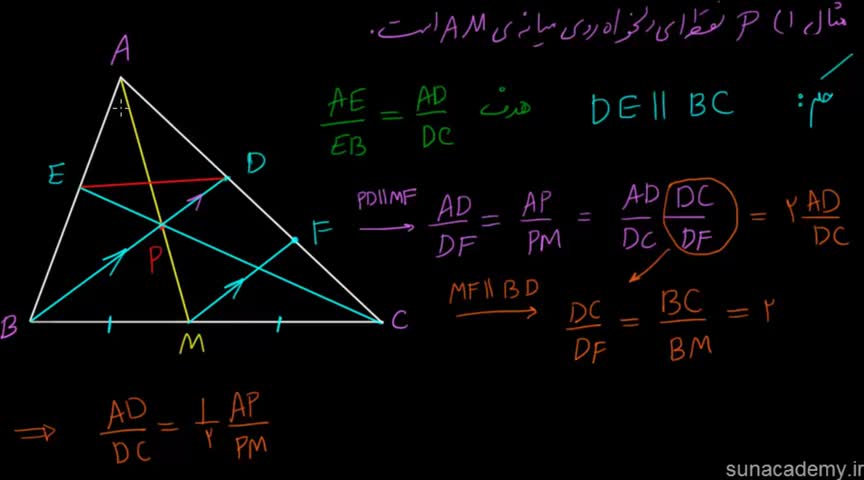 مثال ۱) P نقطه‌ای دلخواه روی میانه‌ی AM است.
حکم: DE || BC
هدف AE/EB = AD/DC
PD||MF → AD/DF = AP/PM = AD/DC DC/DF = ۲ AD/DC
MF || BD → DC/DF = BC/BM = ۲
⇒ AD/DC = ۱/۲ AP/PM
A
E
D
P
F
B
M
C
sunacademy.ir